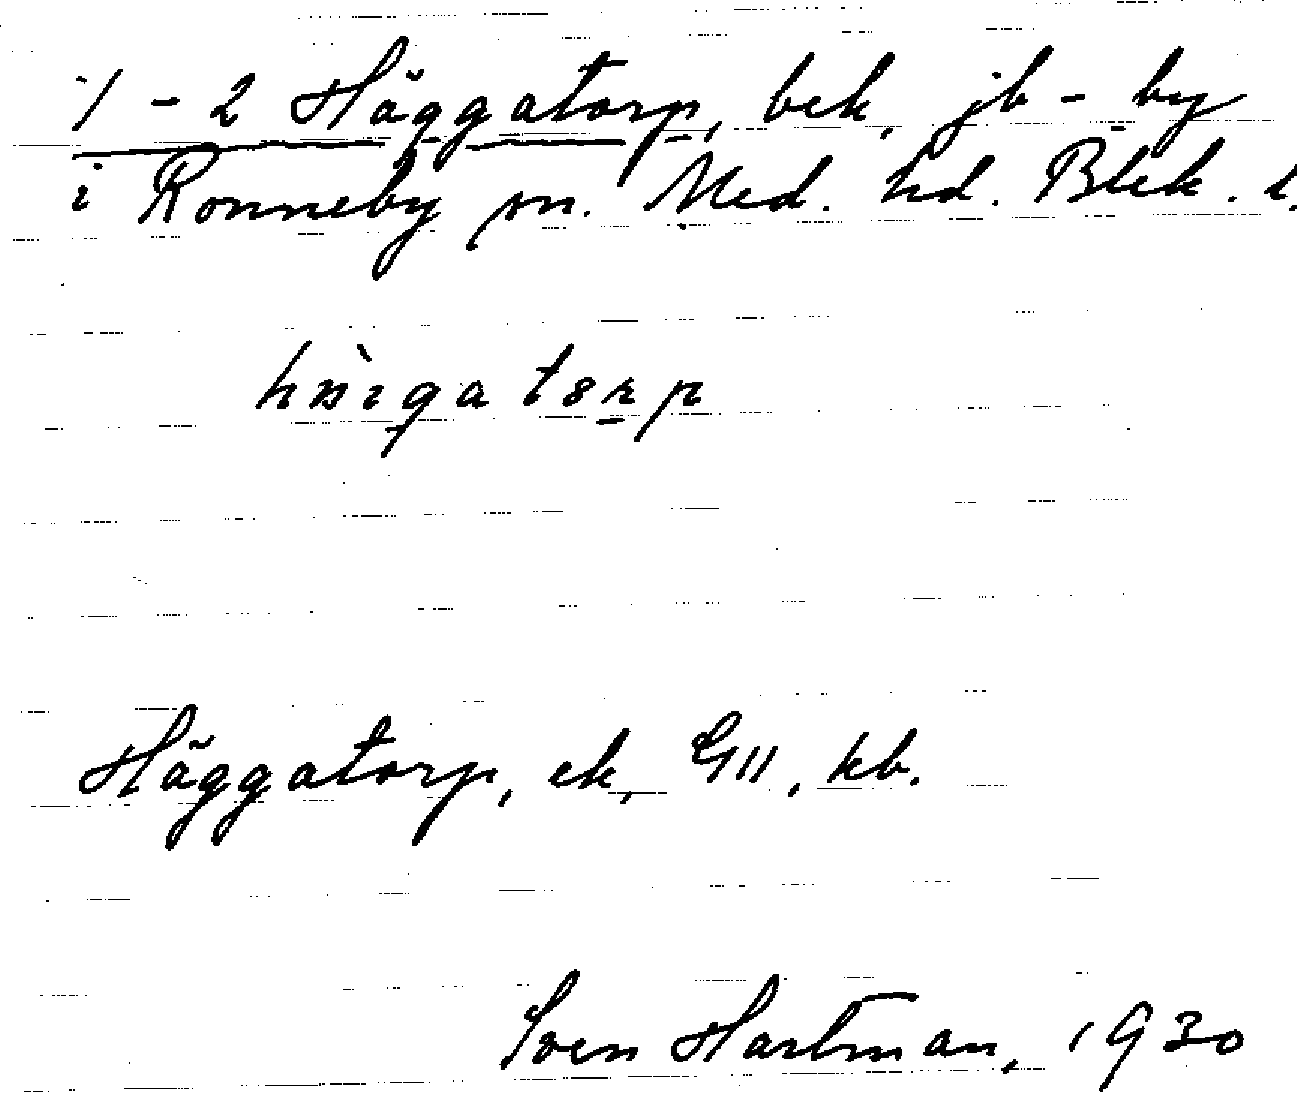 1/ - 2 Häggatorp, bek, jb - by
i Ronneby sn. Med. hd. Blek. l.
Häggatorp, ek, G11, kb.
Sven Hartman, 1930